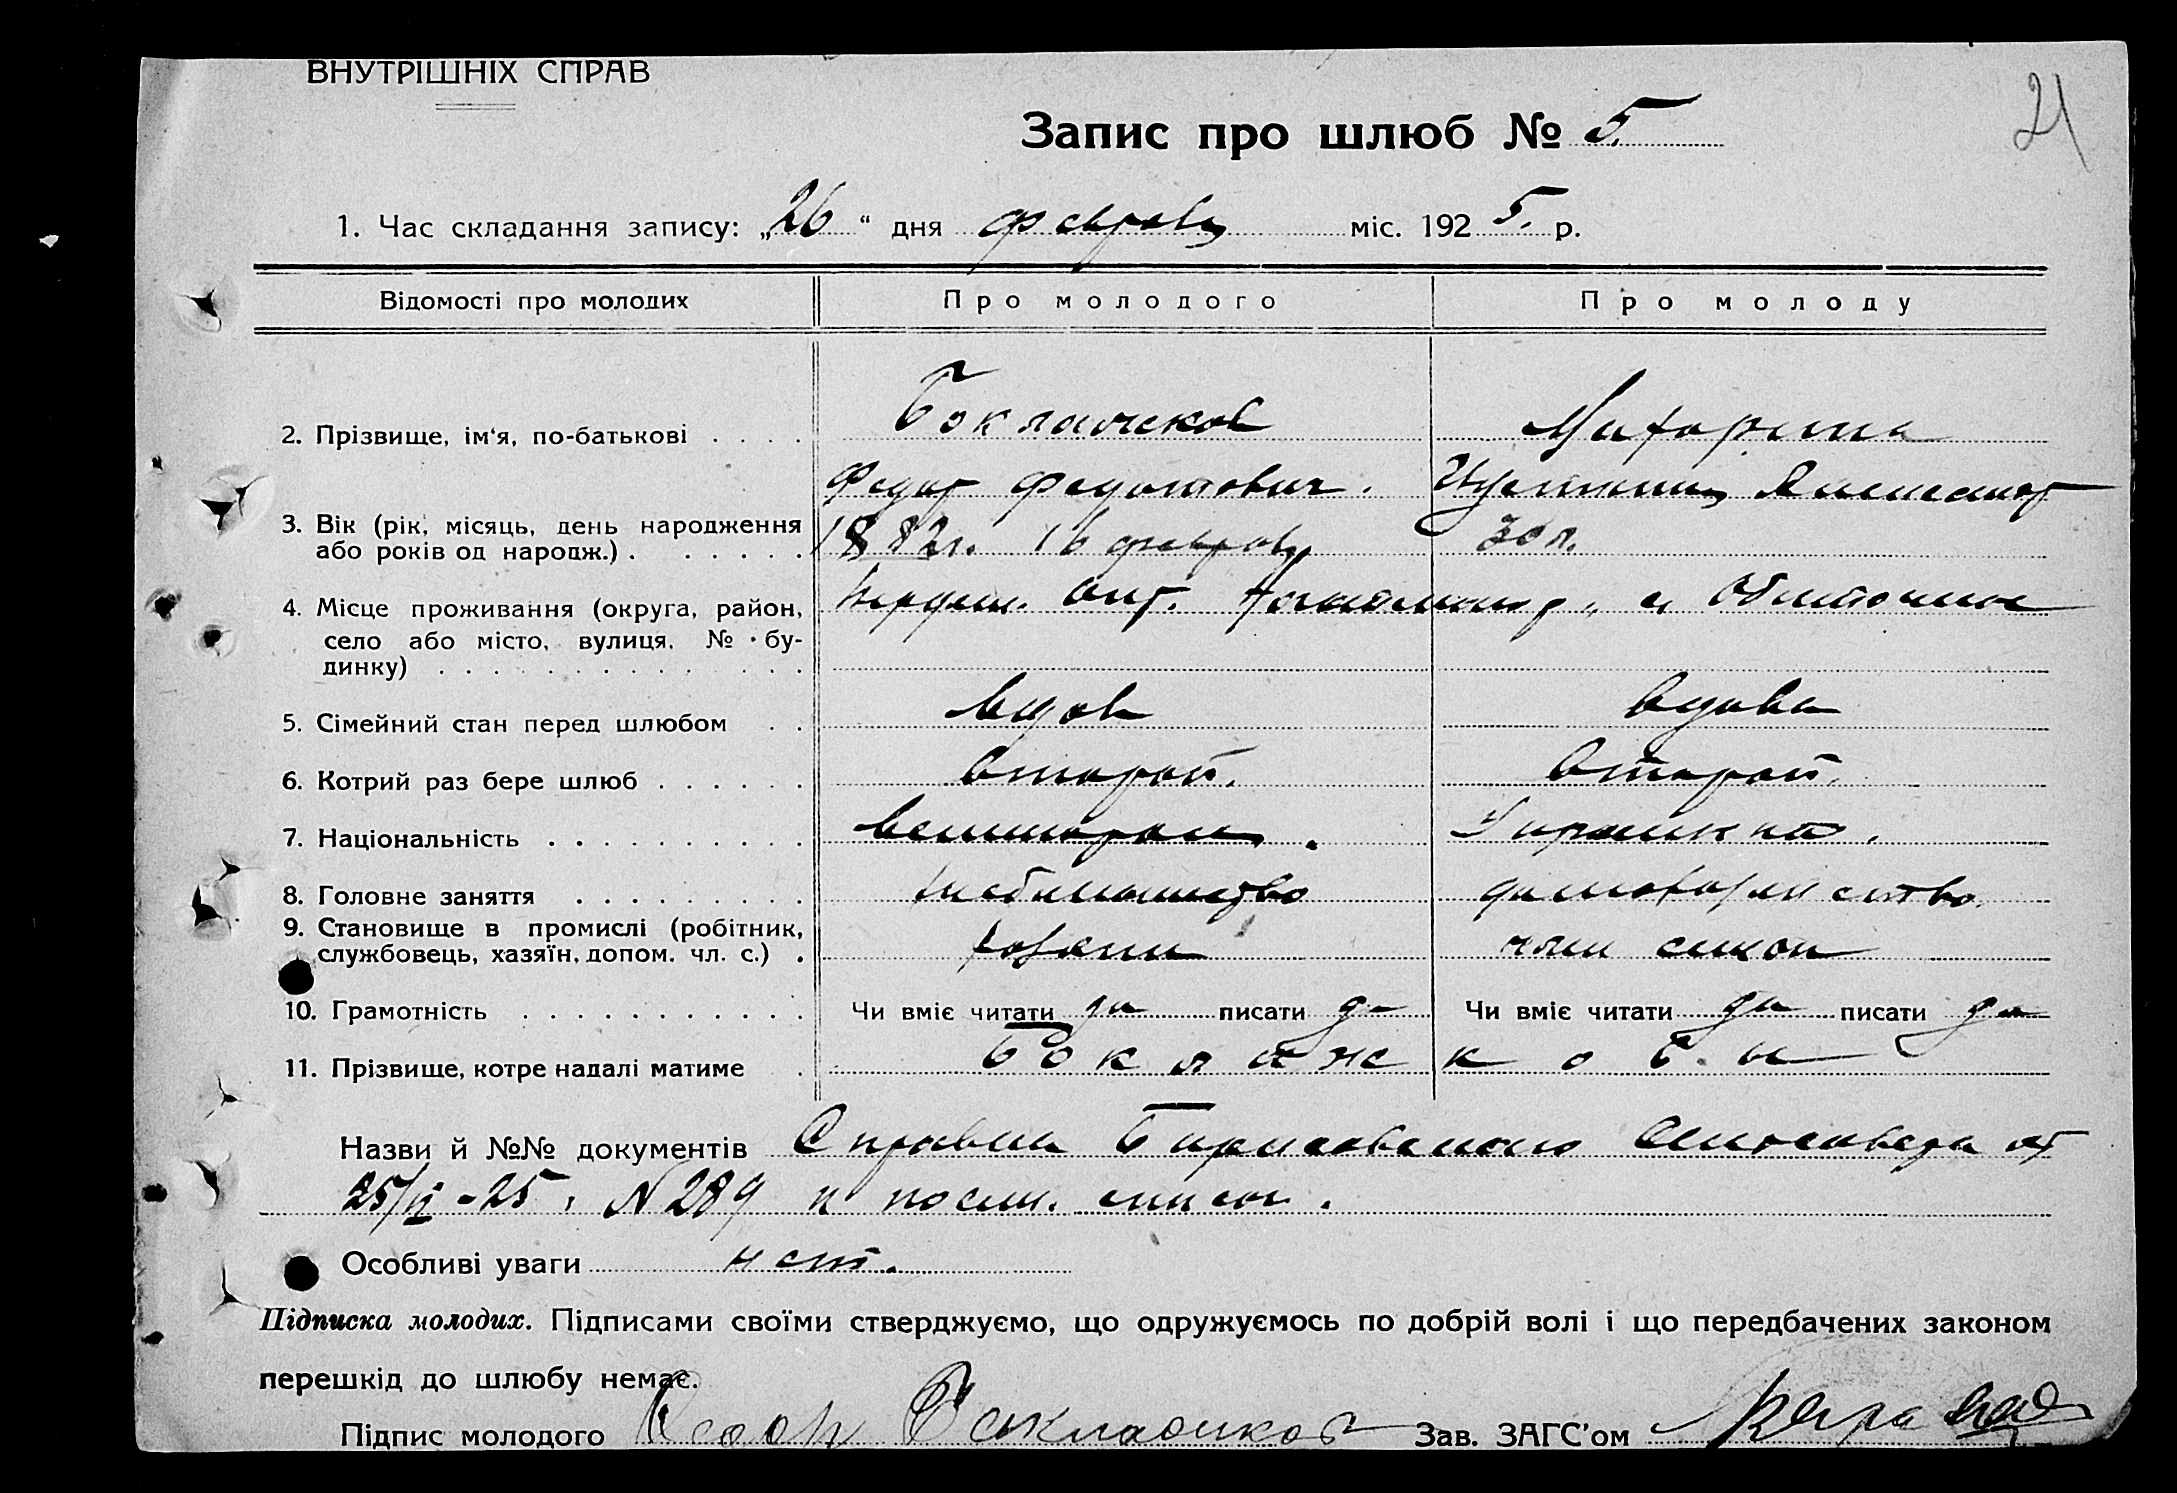 ВНУТРІШНІХ СПРАВ
21
Запис про шлюб № 5.
1. Час складання запису: „26“ дня февраля міс. 1925. р.
Відомості про молодих Про молодого Про молоду
2. Прізвище, ім'я, по-батькові
Федот Федотович.
3. Вік (рік, місяць, день народження або років од народж.) 1882г. 16 февраля 30 л.
4. Місце проживання (округа, район, село або місто, вулиця, № будинку) окр. р. с
5. Сімейний стан перед шлюбом вдов вдова
6. Котрий раз бере шлюб второй. второй.
7. Національність Украинка.
8. Головне заняття хлебопашество домохозяйство
9. Становище в промислі (робітник, службовець, хазяїн, допом. чл. с.) хозяин член семьи
10. Грамотність Чи вміє читати да писати да Чи вміє читати да писати да
11. Прізвище, котре надалі матиме Боклажковы
Назви й №№ документів Справка от
25/II-25. N 289 и посем. список.
Особливі уваги нет.
Підписка молодих. Підписами своїми стверджуємо, що одружуємось по добрій волі і що передбачених законом
перешкід до шлюбу немає.
Підпис молодого Зав. ЗАГС'ом